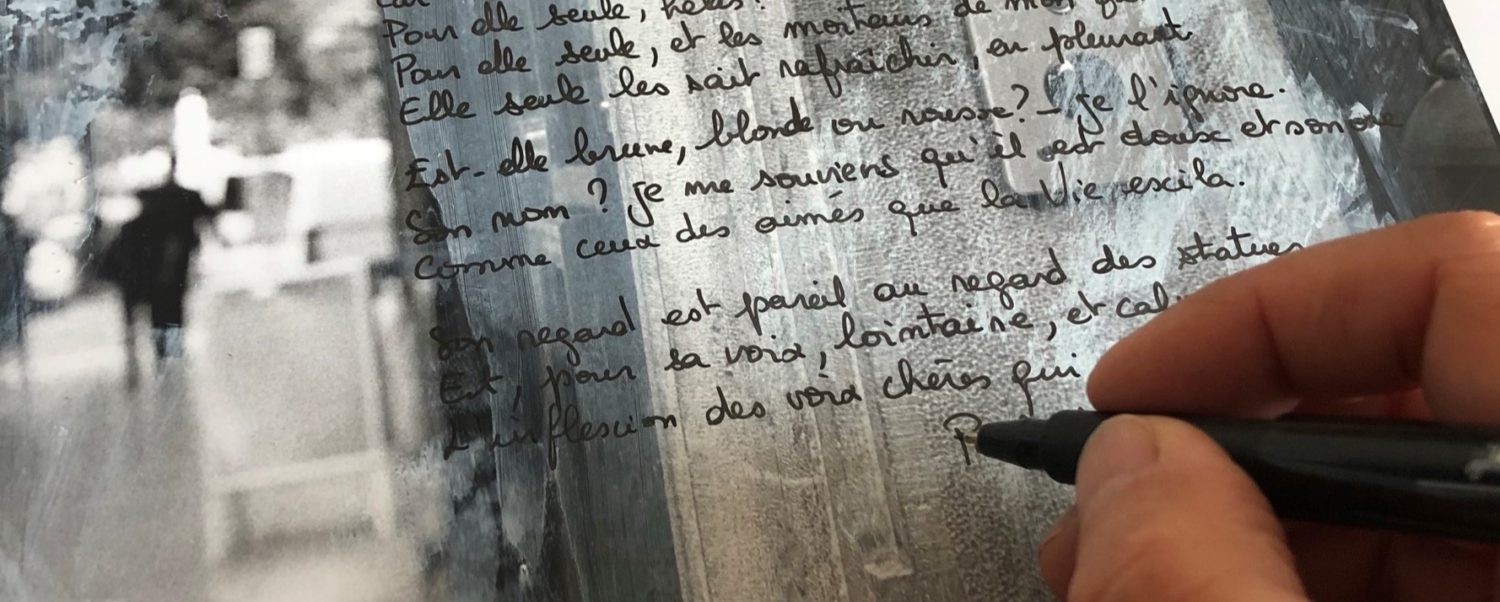 Car
Pour elle seule, hélas!
Pour elle seule, et les moiteurs de mon
Elle seule les sait rafraîchir, en pleurant
Est-elle brune, blonde ou rousse? - Je l'ignore.
Son nom? Je me souviens qu'il est doux et sonore
Comme ceux des aimés que la Vie exila.
Son regard est pareil au regard des statues
Et, pour sa voix, lointaine, et cal
L'inflexion des voix chères qui
P